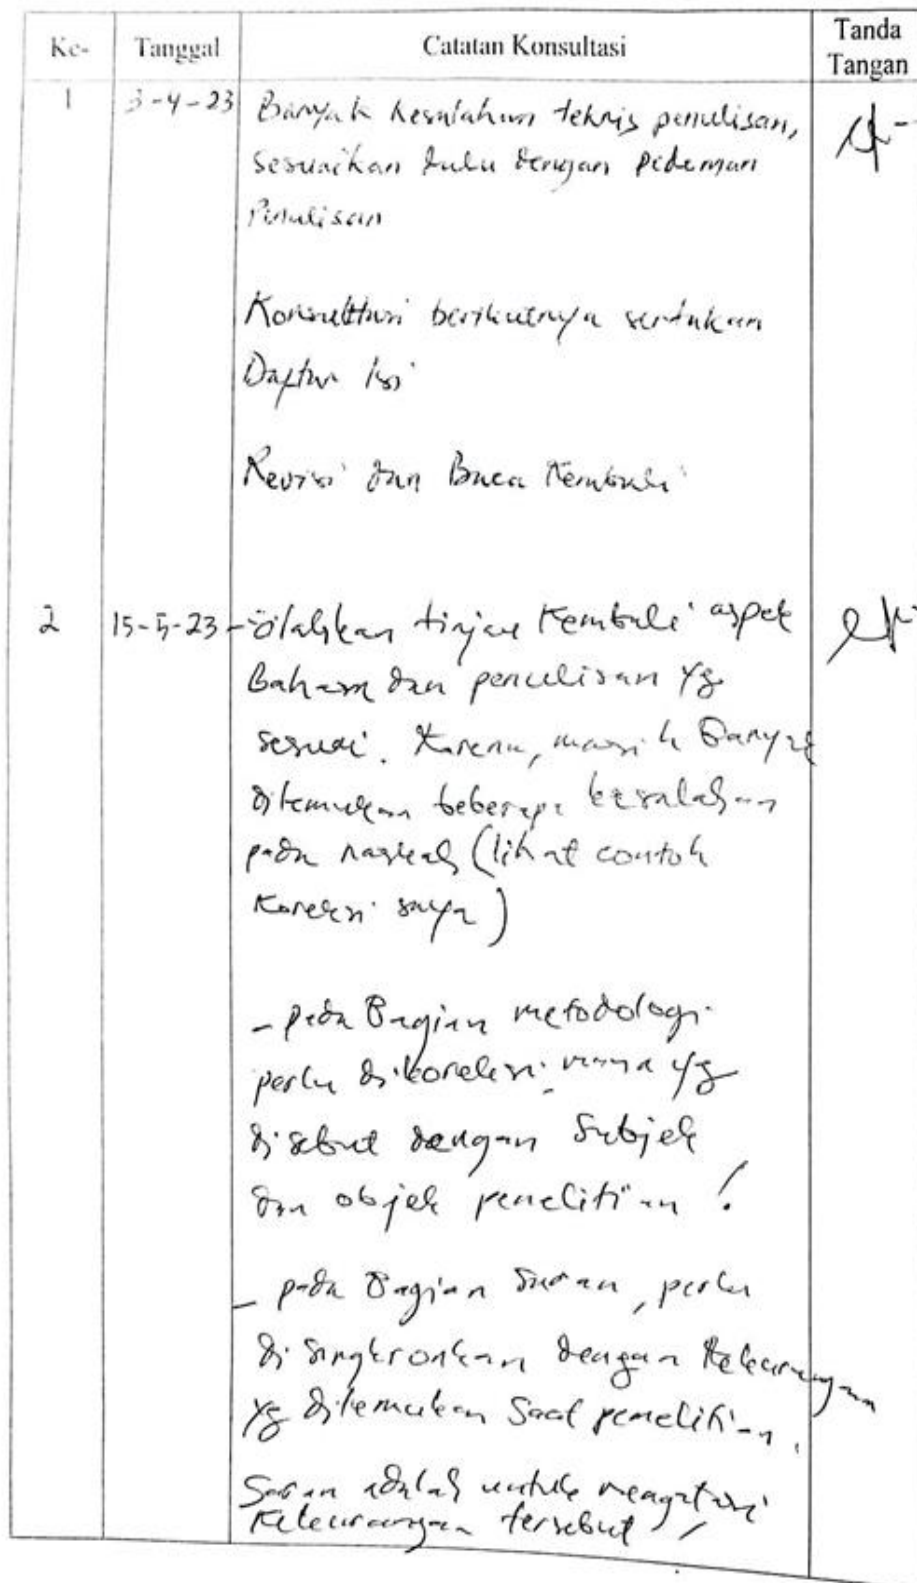 Ke- Tanggal Catatan Konsultasi Tanda Tangan
1 3-4-23 Banyak kesalahan teknis penulisan,
sesuaikan dulu dengan pedoman
Penulisan
Konsultasi berikutnya sertakan
Daftar Isi
Revisi dan Baca Kembali
2 15-5-23 - Silahkan tinjau kembali aspek
Bahasa dan penulisan yg
sesuai. Karena, masih Banyak
ditemukan beberapa kesalahan
pada naskah (lihat contoh
Koreksi saya)
- pada Bagian metodologi
perlu dikoreksi, mana yg
disebut dengan Subjek
dan objek penelitian !
- pada Bagian Saran, perlu
di singkronkan dengan Kekurangan
yg ditemukan Saat penelitian.
Saran adalah untuk mengatasi
Kekurangan tersebut